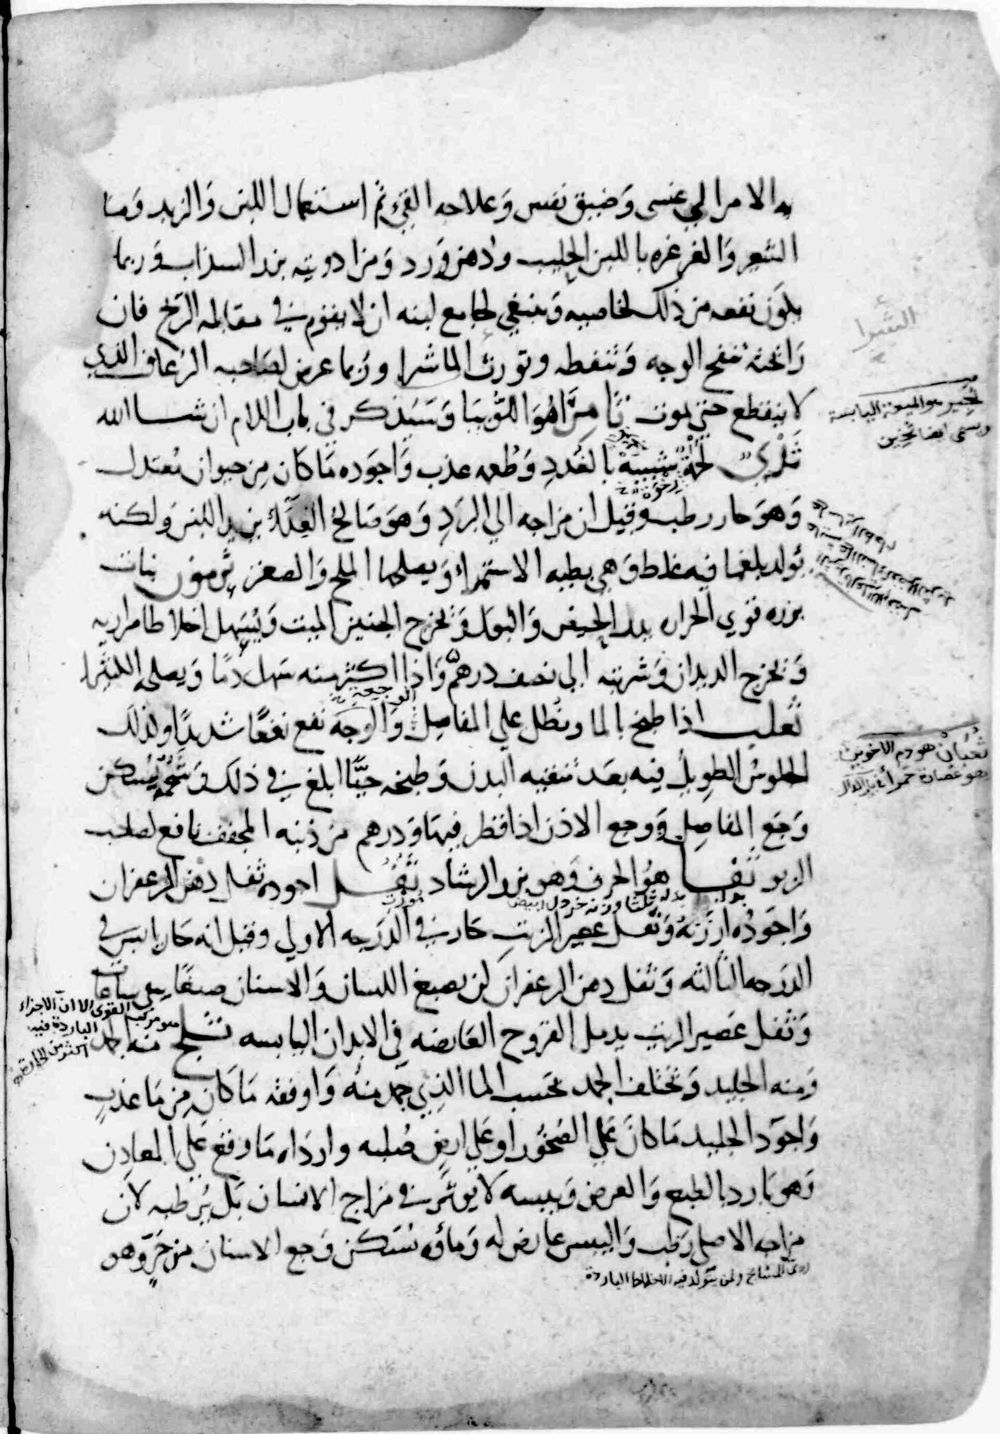 به الامر الي غشى وضيق نفس وعلاجه القيء ثم استعمال اللبن والزبد وما
الشعير والغرغره باللبن الحليب ودهن ورد ومن ادويته بزر السذاب وربما
يكون نفعه من ذلك لخاصيه وينبغي لجامع لبنه ان لا يقوم في مقابله الريح فان
رائحته تنفخ الوجه وتنفطه وتورث الماشرا وربما عرض لصاحبه الرعاف الذي
لا ينقطع حتى يموت ثامر هو اللوبيا وسنذكر في باب اللام ان شا الله
ثدي لحمه شبيه بالغدد وطعمه عذب واجوده ما كان من حيوان معتدل
رخوة
وهو حار رطب وقيل ان مزاجه الي البرد وهو صالح الغذا يزيد اللبن ولكنه
يولد بلغما فيه غلظ وهي بطيه الاستمرا ويصلحها الملح والصعتر ثومون نبات
بزره قوي الحراره يدر الحيض والبول ويخرج الجنين الميت ويسهل اخلاطا مراريه
ويخرج الديدان وشربته الي نصف درهم واذا اكثر منه سهل دما ويصلحه الكثيرا
ثعلب اذا طبخ بالما ونطل علي المفاصل الوجعة نفع نفعا شديدا وكذلك
الوجعة
الجلوس الطويل فيه بعد تنقيه البدن وطبخه حيا ابلغ في ذلك وشحمه يسكن
وجع المفاصل ووجع الاذن اذا قطر فيها ودرهم من ذنبه المجفف نافع لصاحب
الربو ثفا هو الحرف وهو بزر الرشاد ثفل اجوده ثفل دهن الزعفران
بدله ثلثا وزنه خردل ابيض
واجوده ارزنه وثفل عصير الزيت حار في الدرجه الاولي وقيل انه حار يابس في
الدرجه الثالثه وثفل دهن الزعفران لن يصبغ اللسان والاسنان صبغا يبقي ساعات
وثفل عصير الزيت يدمل القروح العارضه في الابدان اليابسه ثلج منه جمد
ومنه الجليد ويختلف الجمد بحسب الما الذي جمد منه واوفقه ما كان من ما عذب
واجود الجليد ما كان علي الصخور او علي ارض صلبه واردا ه ما وقع علي المعادن
وهو بارد بالطبع والعرض ويبسه لا يوثر في مزاج الانسان بل يرطبه لان
مزاجه الاصلي رطب واليبس عارض له وماؤه يسكن وجع الاسنان من حر وهو
ردي للمشائخ ولمن يتولد فيه الاخلاط الباردة
ثجير هو الميعة اليابسة
ويسمى ايضا ثجين
ثعبان هو دم الاخوين
وهو عصارة حمراء
هو مركب القوى الا ان الاجزاء
الباردة فيه
اكثر من الحارة